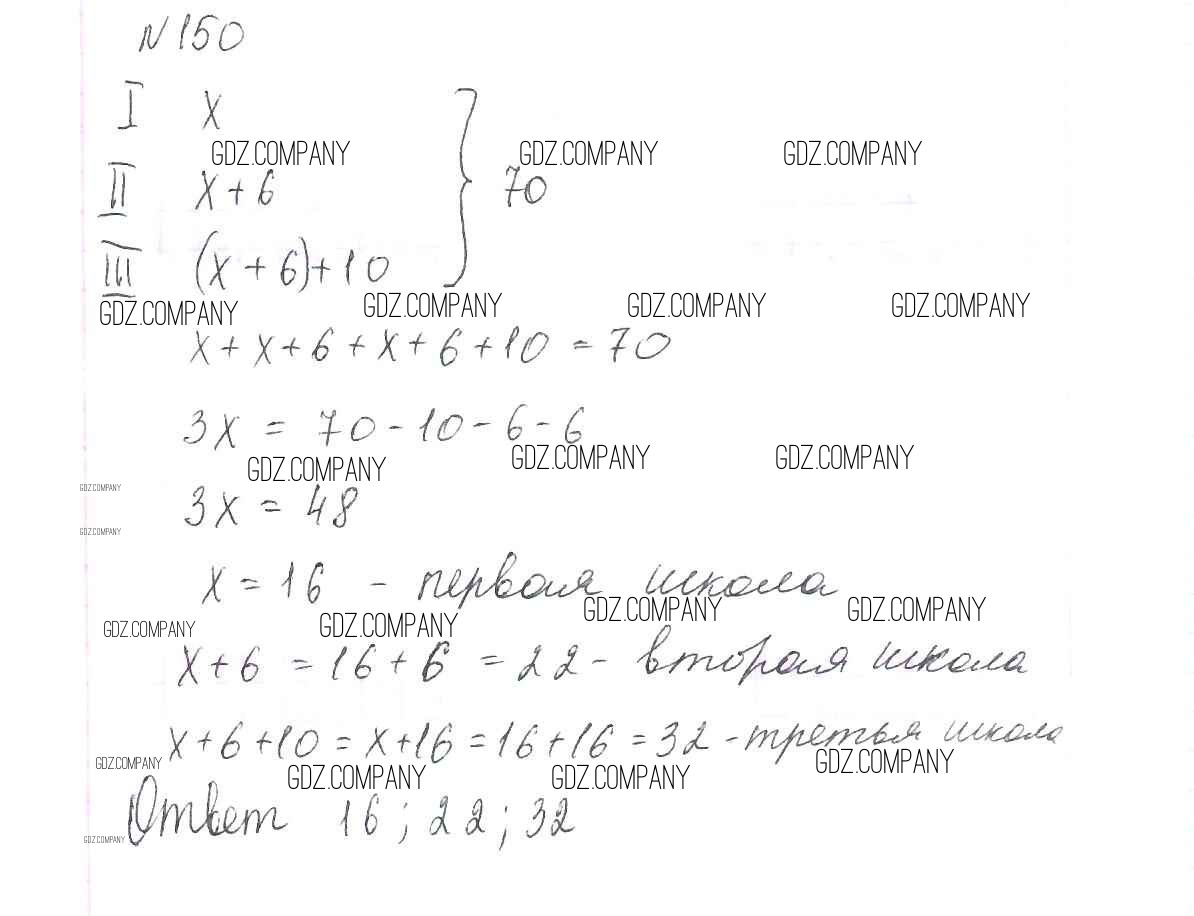 N 150
I x
GDZ.COMPANY GDZ.COMPANY GDZ.COMPANY
II x+6 } 70
III (x+6)+10
GDZ.COMPANY GDZ.COMPANY GDZ.COMPANY GDZ.COMPANY
x+x+6+x+6+10 = 70
3x = 70-10-6-6
GDZ.COMPANY GDZ.COMPANY GDZ.COMPANY
GDZ.COMPANY
3x = 48
GDZ.COMPANY
x = 16 - первая школа
GDZ.COMPANY GDZ.COMPANY GDZ.COMPANY GDZ.COMPANY
x+6 = 16+6 = 22 - вторая школа
x+6+10 = x+16 = 16+16 = 32 - третья школа
GDZ.COMPANY GDZ.COMPANY GDZ.COMPANY GDZ.COMPANY
Ответ 16; 22; 32
GDZ.COMPANY